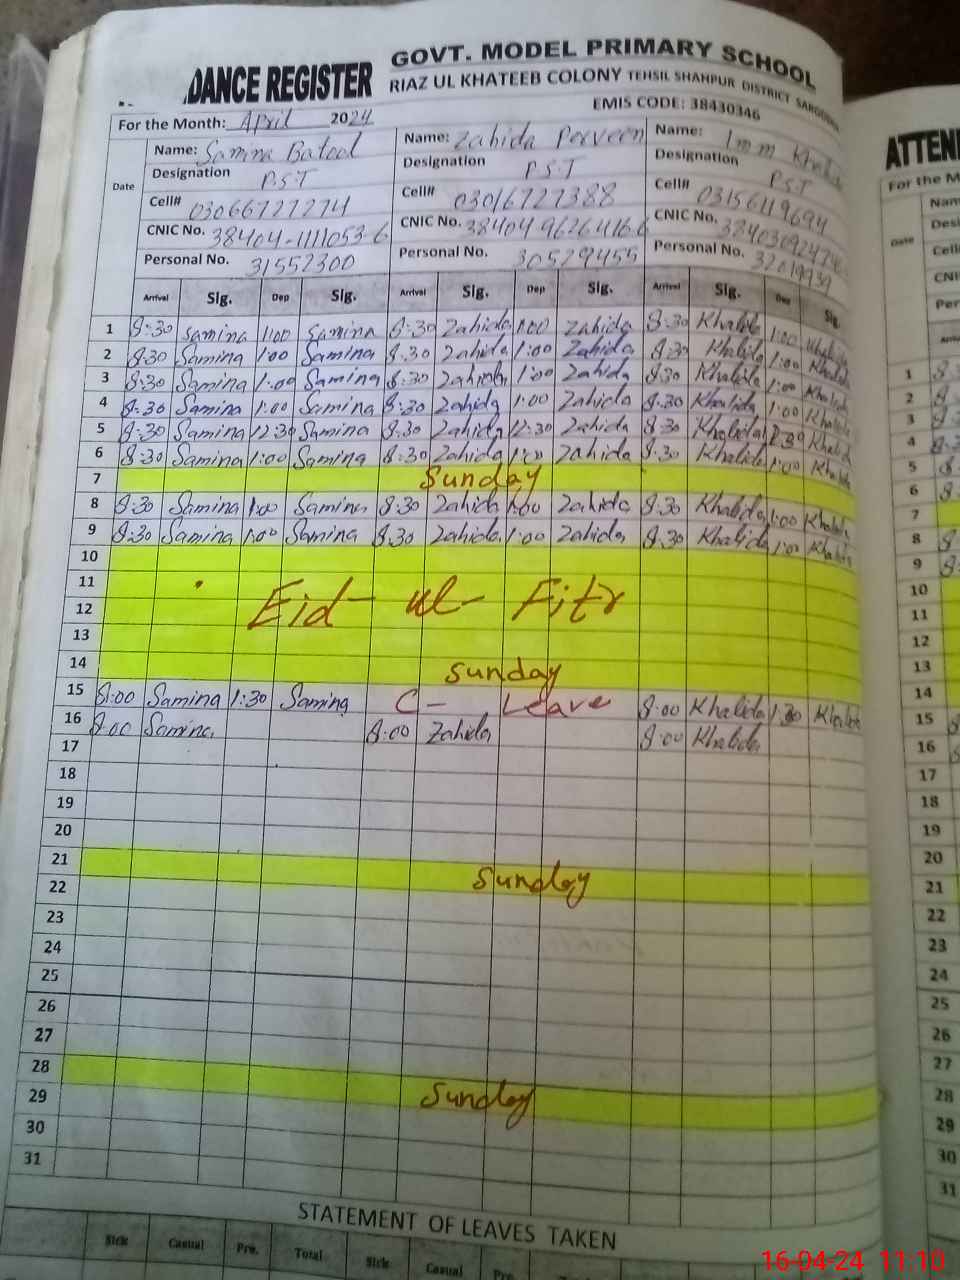 DANCE REGISTER
GOVT. MODEL PRIMARY SCHOOL
RIAZ UL KHATEEB COLONY TEHSIL SHAHPUR DISTRICT
EMIS CODE: 38430346
For the Month: April 2024
Date
Name: Samina Batool
Designation P.S.T
Cell# 03066727274
CNIC No. 38404-1111053-6
Personal No. 31552300
Name: Zahida Perveen
Designation P.S.T
Cell# 03016727388
CNIC No.
Personal No. 30529455
Name: Imm
Designation P.S.T
Cell# 03156119694
CNIC No.
Personal No.
Arrival Sig. Dep Sig. Arrival Sig. Dep Sig. Arrival Sig. Dep Sig.
1 8:30 Samina 1:00 Samina 8:30 Zahida 1:00 Zahida 8:30 Khalida 1:00 Khalida
2 8:30 Samina 1:00 Samina 8:30 Zahida 1:00 Zahida 8:30 Khalida 1:00 Khalida
3 8:30 Samina 1:00 Samina 8:30 Zahida 1:00 Zahida 8:30 Khalida 1:00 Khalida
4 8:30 Samina 1:00 Samina 8:30 Zahida 1:00 Zahida 8:30 Khalida 1:00 Khalida
5 8:30 Samina 12:30 Samina 8:30 Zahida 12:30 Zahida 8:30 Khalida Khalid
6 8:30 Samina 1:00 Samina 8:30 Zahida 1:00 Zahida 8:30 Khalida 1:00 Khali
7 Sunday
8 8:30 Samina 1:00 Samina 8:30 Zahida 1:00 Zahida 8:30 Khalida 1:00 Khalida
9 8:30 Samina 1:00 Samina 8:30 Zahida 1:00 Zahida 8:30 Khalida 1:00 Khalida
10
11
12 Eid-ul-Fitr
13
14 Sunday
15 8:00 Samina 1:30 Samina C- Leave 8:00 Khalida 1:30 Khalida
16 8:00 Samina 8:00 Zahida 8:00 Khalida
17
18
19
20
21 Sunday
22
23
24
25
26
27
28 Sunday
29
30
31
STATEMENT OF LEAVES TAKEN
Sick Casual Pre. Total Sick Casual Pre.
ATTEN
For the M
Date
Nam
Desi
Cell
CNI
Per
1
2
3
4
5
6
7
8
9
10
11
12
13
14
15
16
17
18
19
20
21
22
23
24
25
26
27
28
29
30
31
16-04-24 11:10